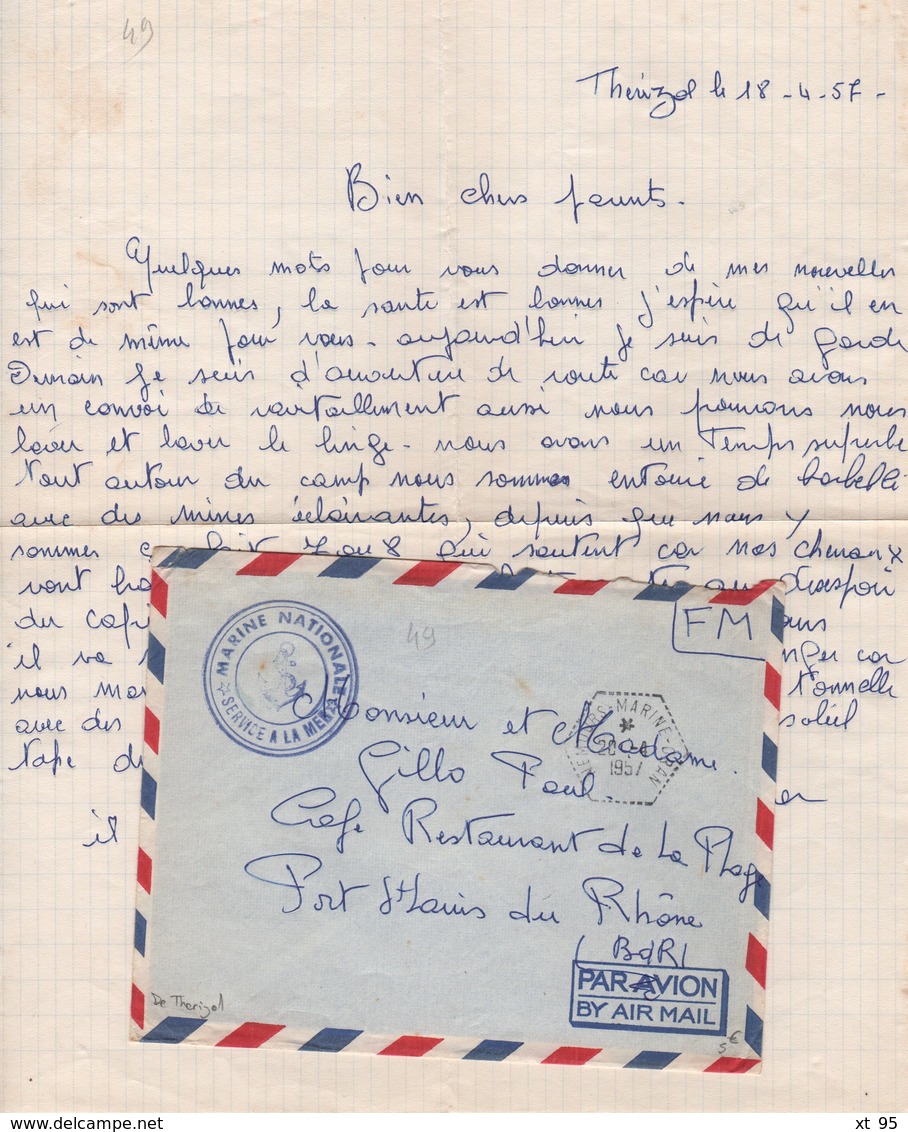 49
Therizol le 18 - 4 - 57 -
Bien chers parents.
Quelques mots pour vous donner de mes nouvelles
qui sont bonnes, la sante est bonnes j'espère qu'il en
est de même pour vous - aujourd'hui je suis de garde
Demain je suis d'ouverture de route car nous avons
un convoi de ravitaillement aussi nous pourrons nous
laver et laver le linge - nous avons un Temps superbe
tout autour du camp nous sommes entouré de barbellé
avec des mines éclairantes, depuis que nous y
sommes 7 ou 8 qui sautent car nos chevaux
vont au desespoir
du
il va car
nous tonnelle
avec des soleil
tape
il
MARINE NATIONALE
SERVICE A LA MER
49
FM
MARINE-ORAN
1957
Monsieur et Madame.
Gillo Paul.
Cafe Restaurant de La Plage
Port St Louis du Rhône
(BdR)
PAR AVION
BY AIR MAIL
De Therizol
5€
xt 95